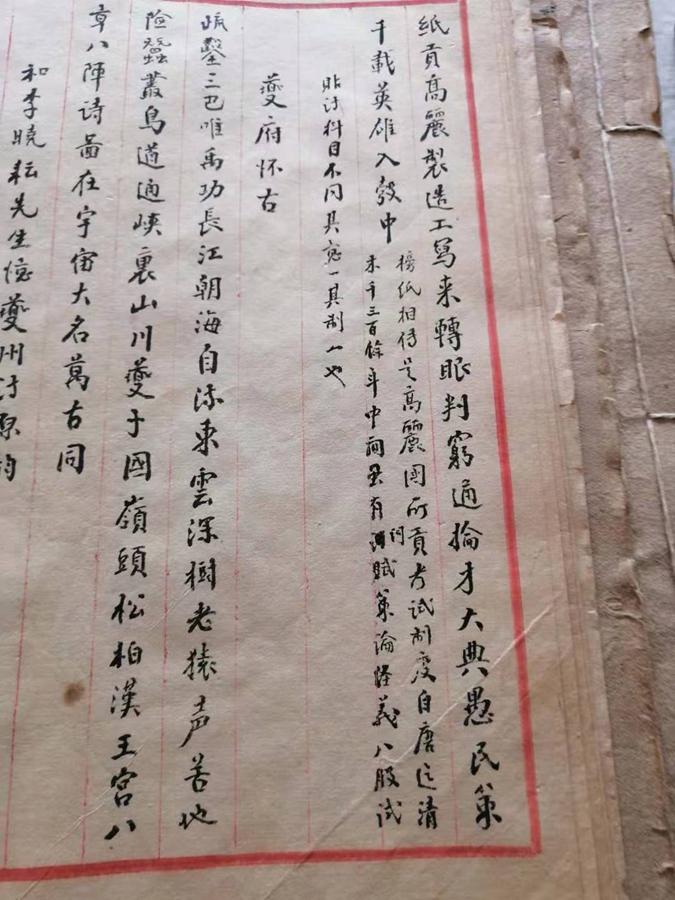 紙貢高麗製造工寫来轉眼判窮通掄才大典愚民策
千載英雄入彀中
榜紙相傳是高麗國所貢考試制度自唐迄清
末千三百餘年中間有詞賦策論經義八股試
貼詩科目不同其一其制一也
夔府怀古
疏鑿三巴唯禹功長江朝海自流東雲深樹老猿声苦地
險蠶叢鳥道通峽裏山川夔子國嶺頭松柏漢王宮八
章八陣诗啚在宇宙大名萬古同
和李曉耘先生憶夔州诗原韵